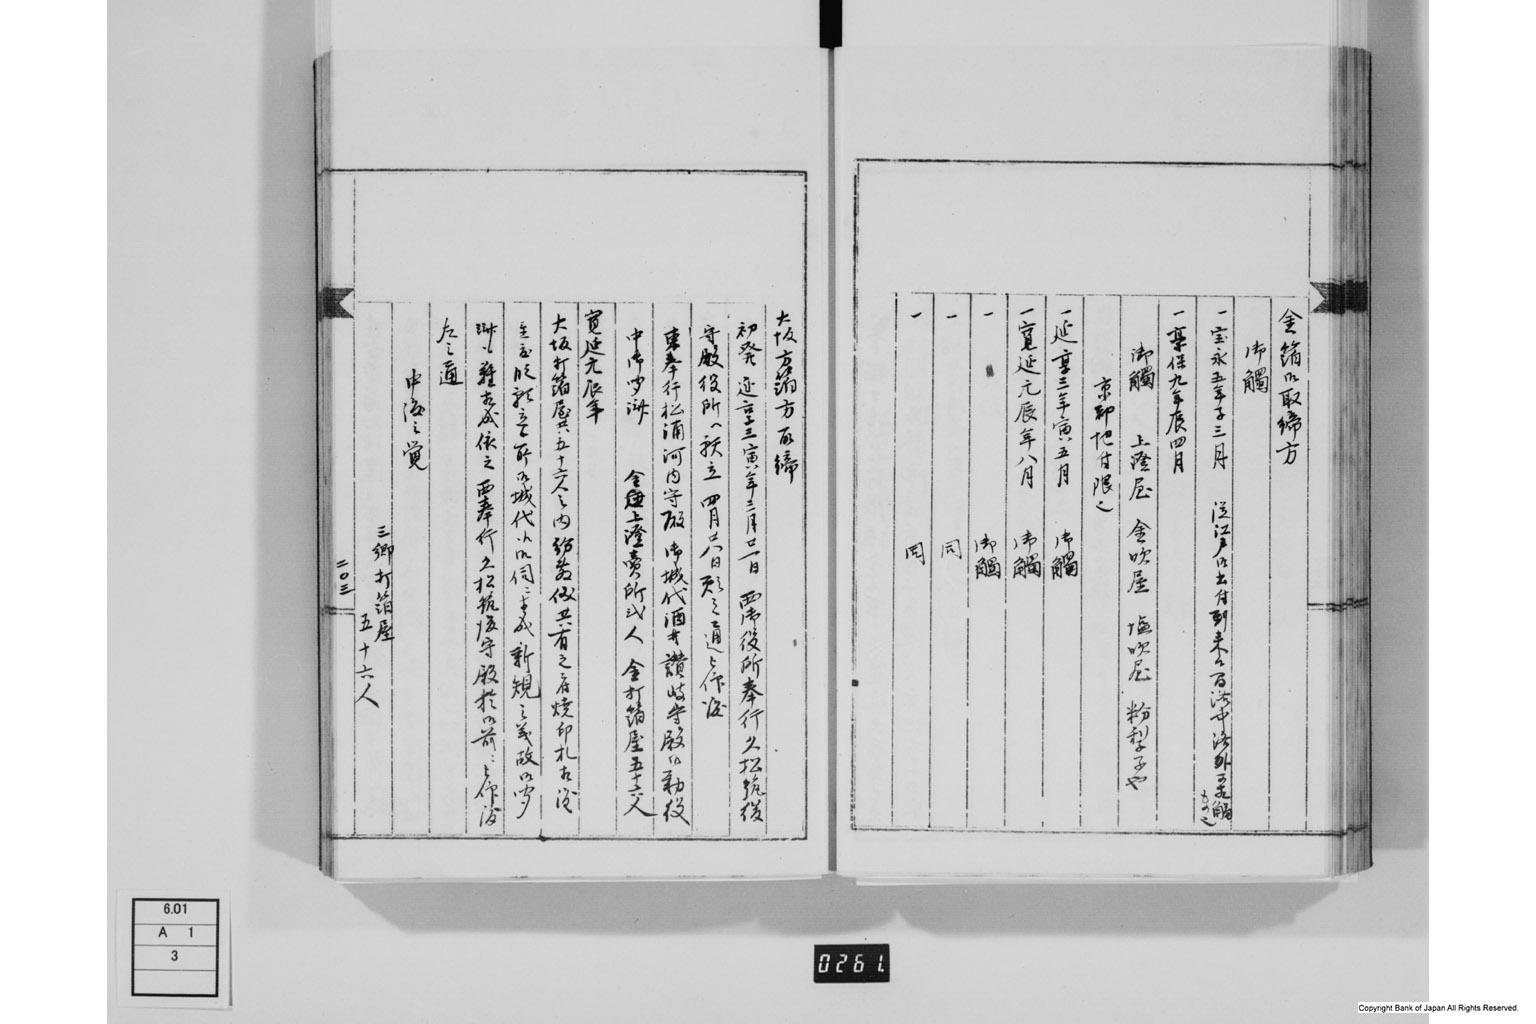 金箔御取締方
御觸
一宝永五年子三月 従江戸御書付到来ニ而洛中洛外
一享保九年辰四月
御觸 上澄屋 金吹屋 塩吹屋 粉梨子や
京都地廿限之
一延享三年寅五月 御觸
一寛延元辰年八月 御觸
一 御觸
一 同
一 同
大坂方箔方取締
初発 延享三寅年三月廿一日 西御役所奉行久松筑後
守殿役所へ願立 四月廿八日願之通被仰渡
東奉行松浦河内守殿 御城代酒井讃岐守殿御勤役
中御聞済 金上澄賣所弐人 金打箔屋五十六人
寛延元辰年
大坂打箔屋共五十六人之内 其有之 焼印札
御城代 御伺ニ 成 新規之義故御聞
済 難 成依之 西奉行久松筑後守殿於御前ニ被仰渡
左之通
申渡之覚
三郷打箔屋
五十六人
二〇三
6.01
A 1
3
0261.
Copyright Bank of Japan All Rights Reserved.